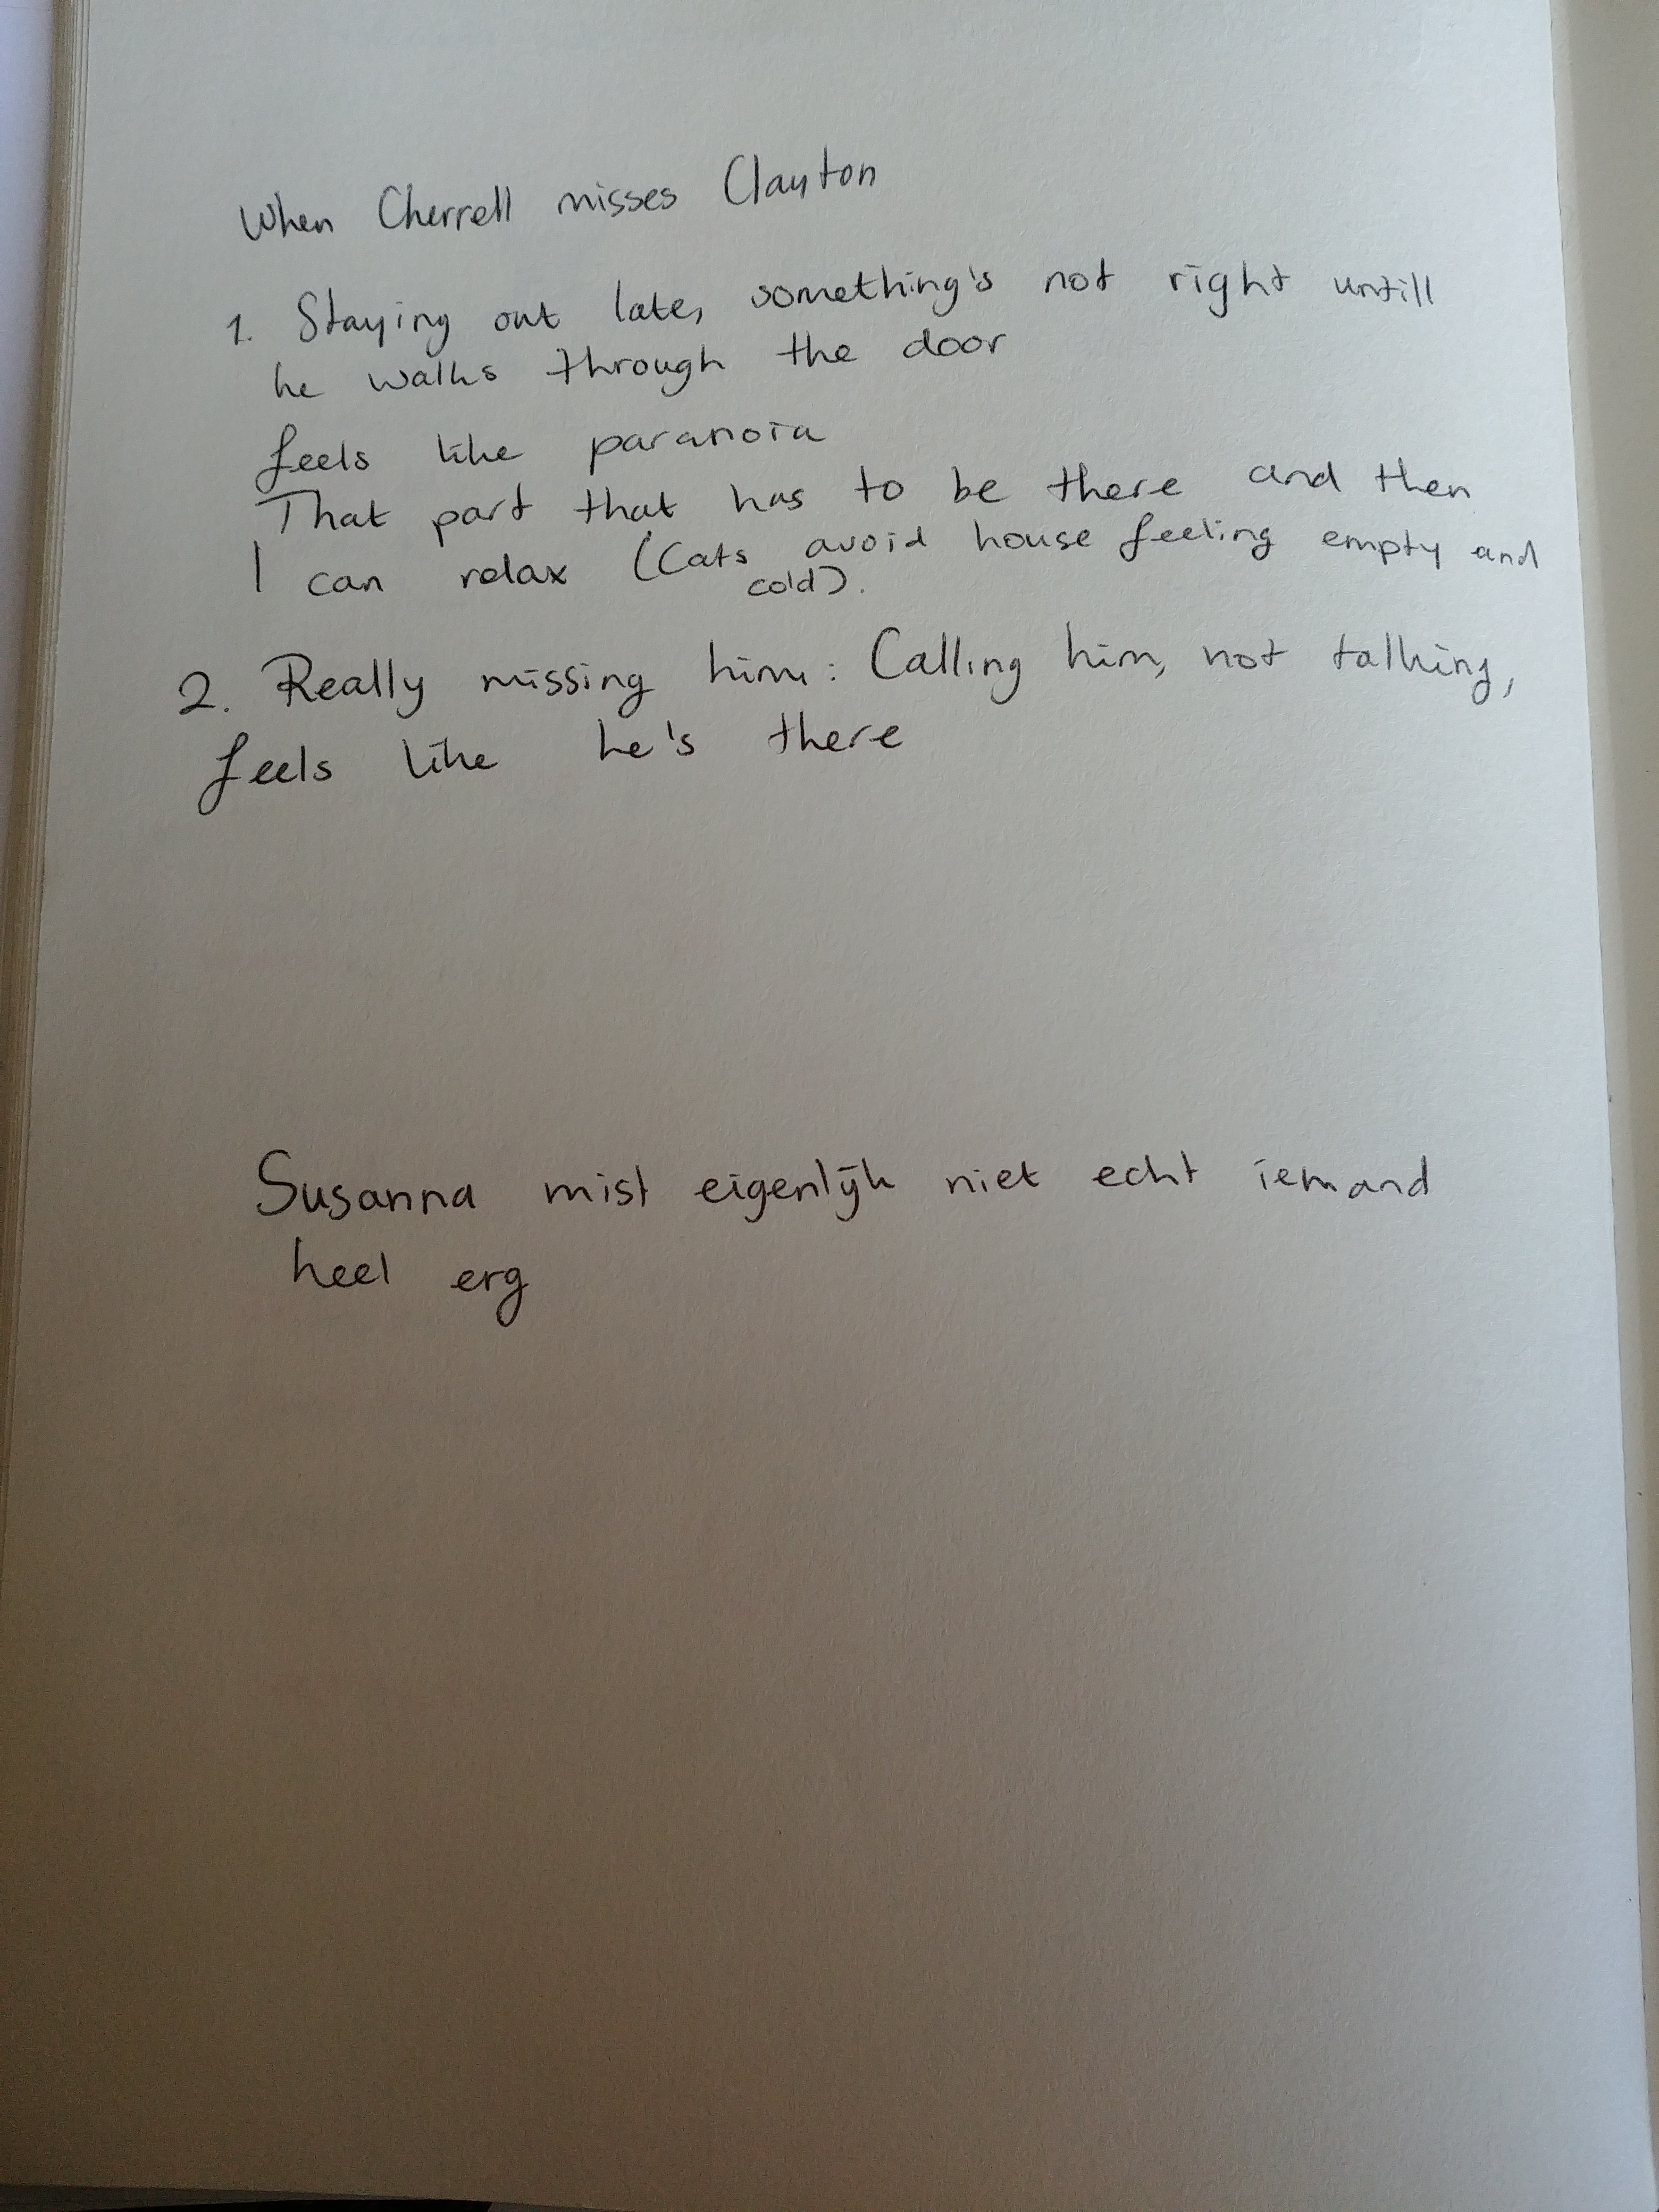 When Cherrell misses Clayton
1. Staying out late, something's not right untill
he walks through the door
feels like paranoia
That part that has to be there and then
I can relax (Cats avoid house feeling empty and
cold).
2. Really missing him: Calling him, not talking,
feels like he's there
Susanna mist eigenlijk niet echt iemand
heel erg